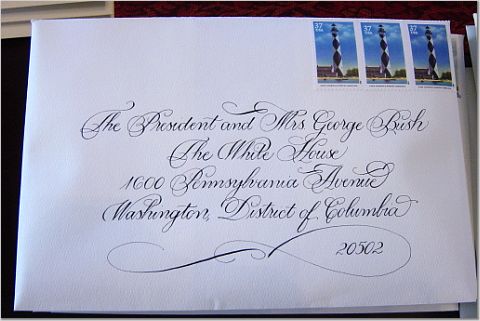 37 37 37
The President and Mrs George Bush
The White House
1600 Pennsylvania Avenue
Washington, District of Columbia
20502